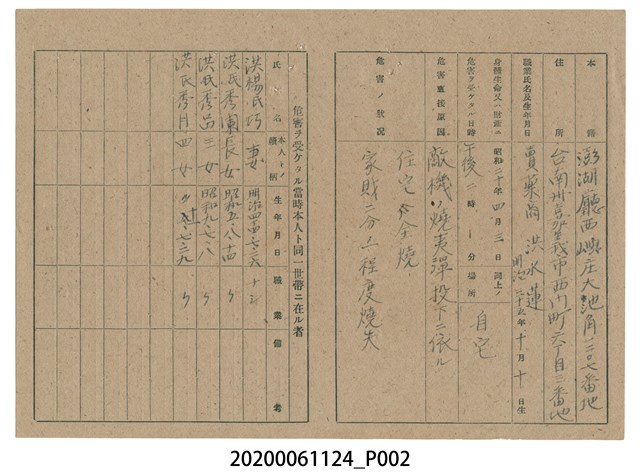 本籍 澎湖廳西嶼庄大池角一二〇七番地
住所 台南州嘉義市西門町六丁目三番地
職業氏名及生年月日 賣藥商 洪水蓮 明治三十七年十月十日生
身體生命又ハ財產ニ危害ヲ受ケタル日時 昭和二十年四月三日午後二時 分 同上ノ場所 自宅
危害直接原因 敵機ノ燒夷彈投下ニ依ル
危害ノ狀況 住宅 全燒
家財二分ノ一程度燒失
危害ヲ受ケタル當時本人ト同一世帶ニ在ル者
氏名 本人トノ續柄 生年月日 職業 備考
洪楊氏巧 妻 明治四四・七・二六 ナシ
洪氏秀蘭 長女 昭和五・八・十四 〃
洪氏秀 三女 昭和九・七・八 〃
洪氏秀月 四女 〃 ・七・二九 〃
20200061124_P002